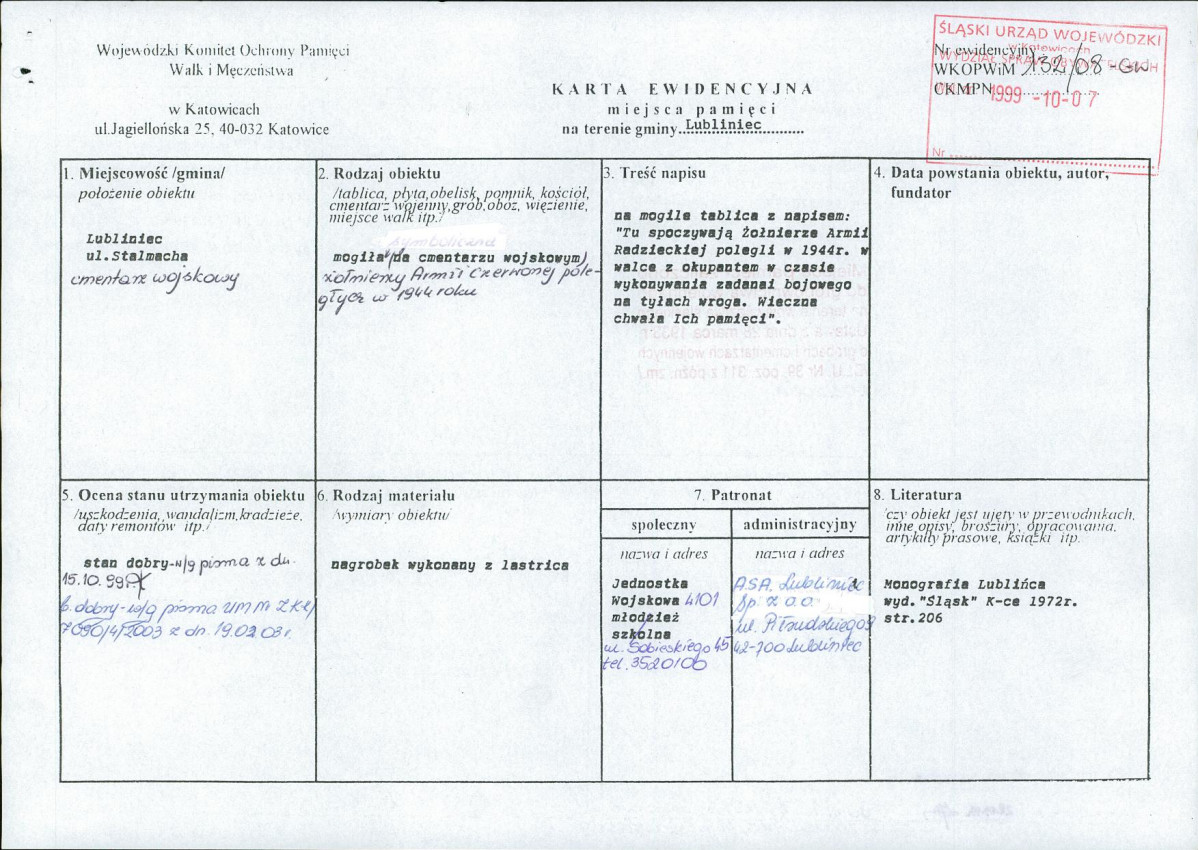 Wojewódzki Komitet Ochrony Pamięci
Walk i Męczeństwa
w Katowicach
ul.Jagiellońska 25, 40-032 Katowice
KARTA EWIDENCYJNA
miejsca pamięci
na terenie gminy..Lubliniec..........
ŚLĄSKI URZĄD WOJEWÓDZKI
w Katowicach
WYDZIAŁ SPRAW OBYWATELSKICH
1999 -10- 0 7
Nr
Nr ewidencyjny
WKOPWiM 132/08-GW
CKMPN
1. Miejscowość /gmina/
położenie obiektu
Lubliniec
ul.Stalmacha
cmentarz wojskowy
2. Rodzaj obiektu
/tablica, płyta,obelisk, pomnik, kościół,
cmentarz wojenny,grób,obóz, więzienie,
miejsce walk itp./
symboliczna
mogiła /na cmentarzu wojskowym/
żołnierzy Armii Czerwonej pole-
głych w 1944 roku
3. Treść napisu
na mogile tablica z napisem:
"Tu spoczywają Żołnierze Armii
Radzieckiej polegli w 1944r. w
walce z okupantem w czasie
wykonywania zadanai bojowego
na tyłach wroga. Wieczna
chwała Ich pamięci".
4. Data powstania obiektu, autor,
fundator
5. Ocena stanu utrzymania obiektu
/uszkodzenia, wandalizm,kradzieże,
daty remontów itp./
stan dobry-w/g pisma z dn.
15.10.99r
b. dobry - w/g pisma UM M ZKE/
7090/4/2003 z dn. 19.02.03r.
6. Rodzaj materiału
/wymiary obiektu/
nagrobek wykonany z lastrica
7. Patronat
społeczny
nazwa i adres
Jednostka
Wojskowa 4101
młodzież
szkolna
ul. Sobieskiego 45
tel. 3520106
administracyjny
nazwa i adres
ASA Lubliniec
Sp. z o.o.
ul. Piłsudskiego
42-700 Lubliniec
8. Literatura
/czy obiekt jest ujęty w przewodnikach,
inne opisy, broszury, opracowania,
artykuły prasowe, książki itp.
Monografia Lublińca
wyd."Śląsk" K-ce 1972r.
str.206